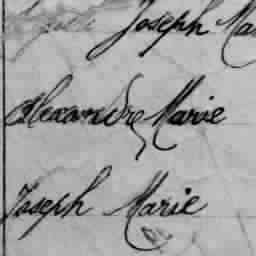 Joseph Ma
Alexandre Marie
Joseph Marie